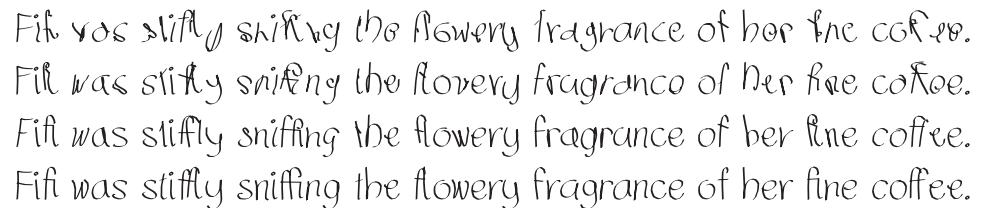 Fifi was stiffly sniffing the flowery fragrance of her fine coffee.
Fifi was stiffly sniffing the flowery fragrance of her fine coffee.
Fifi was stiffly sniffing the flowery fragrance of her fine coffee.
Fifi was stiffly sniffing the flowery fragrance of her fine coffee.